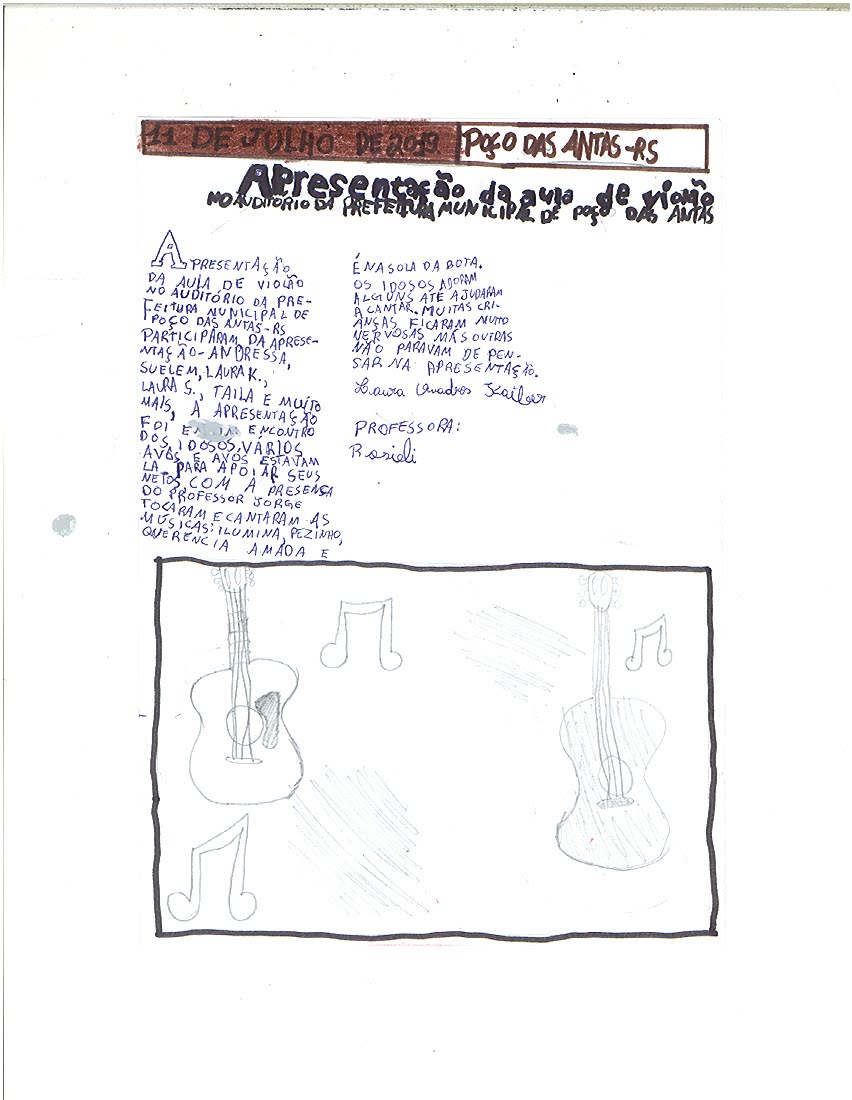 11 DE JULHO DE 2019 POÇO DAS ANTAS-RS
Apresentação da aula de violão
NO AUDITÓRIO DA PREFEITURA MUNICIPAL DE POÇO DAS ANTAS
APRESENTAÇÃO
DA AULA DE VIOLÃO
NO AUDITÓRIO DA PRE-
FEITURA MUNICIPAL DE
POÇO DAS ANTAS-RS
PARTICIPARAM DA APRESE-
NTAÇÃO-ANDRESSA,
SUELEM, LAURA K.,
LAURA S., TAILA E MUITO
MAIS, A APRESENTAÇÃO
FOI ENCONTRO
DOS IDOSOS, VÁRIOS
AVÓS E AVÔS ESTAVAM
LA PARA APOIAR SEUS
NETOS COM A PRESENSA
DO PROFESSOR JORGE
TOCARAM E CANTARAM AS
MÚSICAS: ILUMINA, PEZINHO,
QUERÊNCIA AMADA E
É NA SOLA DA BOTA.
OS IDOSOS ADORAM
ALGUNS ATÉ AJUDARAM
A CANTAR. MUITAS CRI-
ANÇAS FICARAM MUITO
NERVOSAS MAS OUTRAS
NÃO PARAVAM DE PEN-
SAR NA APRESENTAÇÃO.
Laura Quadros
PROFESSORA:
Rosieli